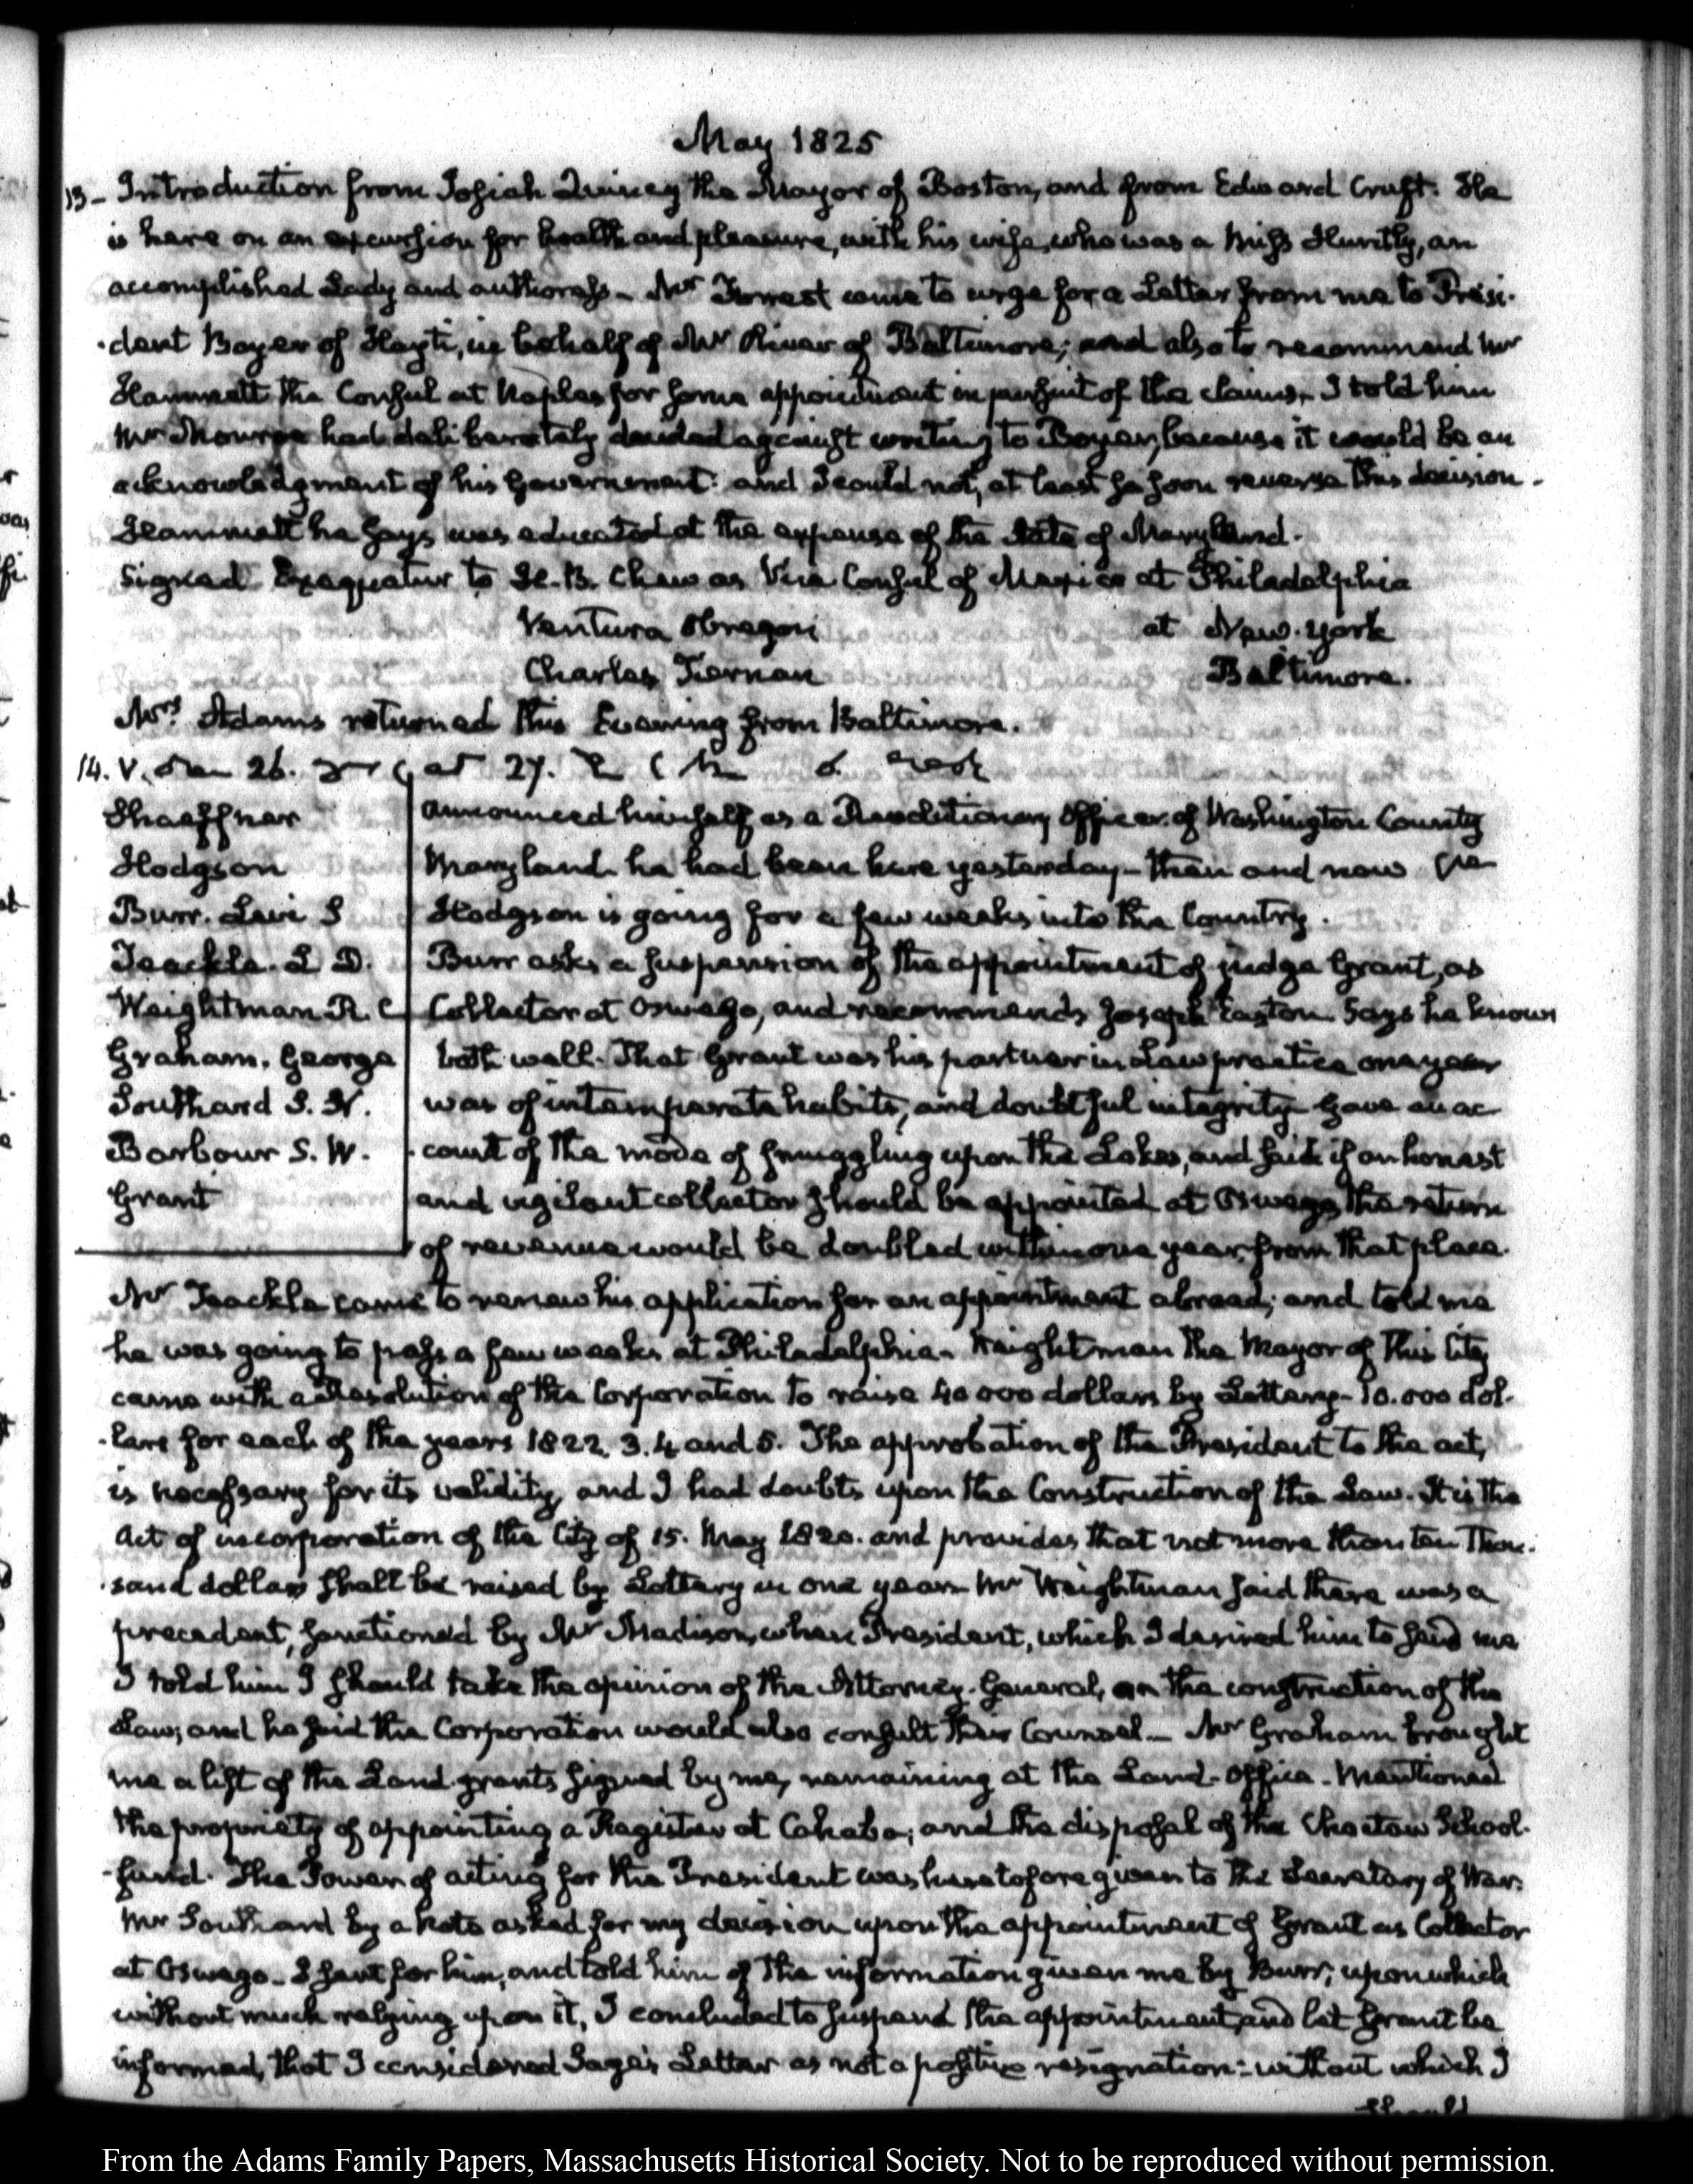 May 1825
13- Introduction from Josiah Quincy the Mayor of Boston, and from Edward Cruft. He
is here on an excursion for health and pleasure, with his wife, who was a Miss Huntly, an
accomplished Lady and authoress- Mr Forrest came to urge for a Letter from me to Presi-
-dent Boyer of Hayti, in behalf of Mr of Baltimore; and also to recommend Mr
Hammett the Consul at Naples for some appointment in pursuit of the claims. I told him
Mr Monroe had deliberately decided against writing to Boyer, because it would be an
acknowledgment of his Government: and I could not, at least so soon reverse this decision-
Hammett he says was educated at the expense of the State of Maryland.
Signed Exequatur to H. B. Chew as Vice Consul of Mexico at Philadelphia
Ventura Obregon at New-York
Charles Tiernan Baltimore.
Mrs. Adams returned this Evening from Baltimore.
14. V. 26. 27.
Shaeffner announced himself as a Revolutionary Officer of Washington County
Hodgson Maryland he had been here yesterday- then and now
Burr. Levi S Hodgson is going for a few weeks into the Country.
Teackle. L D. Burr asks a suspension of the appointment of judge Grant, as
Weightman R. C Collector at Oswego, and recommends Joseph Easton. Says he knows
Graham. George both well. That Grant was his partner in Law practice one year
Southard S. N. was of intemperate habits, and doubtful integrity- Gave an ac
Barbour S. W. -count of the mode of smuggling upon the Lakes, and said if an honest
Grant and vigilant collector should be appointed at Oswego, the return
of revenue would be doubled within one year from that place.
Mr Teackle came to renew his application for an appointment abroad; and told me
he was going to pass a few weeks at Philadelphia- Weightman the Mayor of this City
came with a Resolution of the Corporation to raise 40 000 dollars by Lottery- 10.000 dol-
-lars for each of the years 1822. 3. 4 and 5. The approbation of the President to the act,
is necessary for its validity, and I had doubts upon the Construction of the Law. It is the
Act of incorporation of the City of 15. May 1820. and provides that not more than ten Thou-
-sand dollars shall be raised by Lottery in one year- Mr Weightman said there was a
precedent, sanctioned by Mr Madison, when President, which I desired him to send me
I told him I should take the opinion of the Attorney-General, on the construction of the
Law; and he said the Corporation would also consult their Counsel- Mr Graham brought
me a list of the Land-grants signed by me, remaining at the Land-Office- Mentioned
the propriety of appointing a Register at Cahaba; and the disposal of the Choctaw School-
-fund. The Power of acting for the President was heretofore given to the Secretary of War.
Mr Southard by a Note asked for my decision upon the appointment of Grant as Collector
at Oswego- I sent for him, and told him of the information given me by Burr; upon which
without much relying upon it, I concluded to suspend the appointment, and let Grant be
informed, that I considered Sage's Letter as not a positive resignation: without which I
should
From the Adams Family Papers, Massachusetts Historical Society. Not to be reproduced without permission.